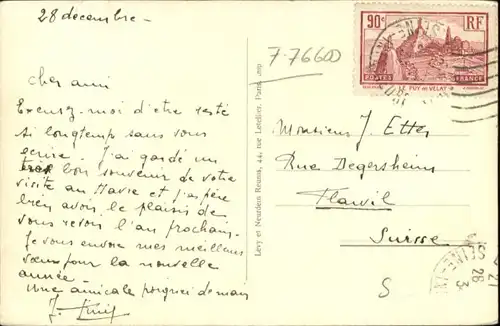 28 decembre -
7-76600
90c RF
POSTES PUY-EN-VELAY FRANCE
Cher ami
Excusez-moi d'être resté
si longtemps sans vous
ecrire. J'ai gardé un
très bon souvenir de votre
visite au Havre et j'espère
bien avoir le plaisir de
vous revoir l'an prochain.
Je vous envoie mes meilleurs
vœux pour la nouvelle
année.
Une amicale poignée de main
J.
Lévy et Neurdein Réunis, 44, rue Letellier, Paris
Monsieur J. Etter
Rue Degersheim
Flawil
Suisse
S
SEINE-IN
28